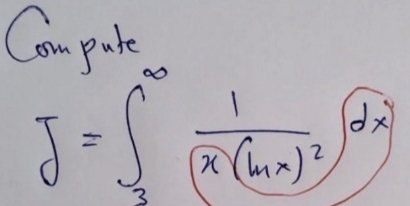 Compute
J = ∫₃^∞ 1/(x(ln x)²) dx